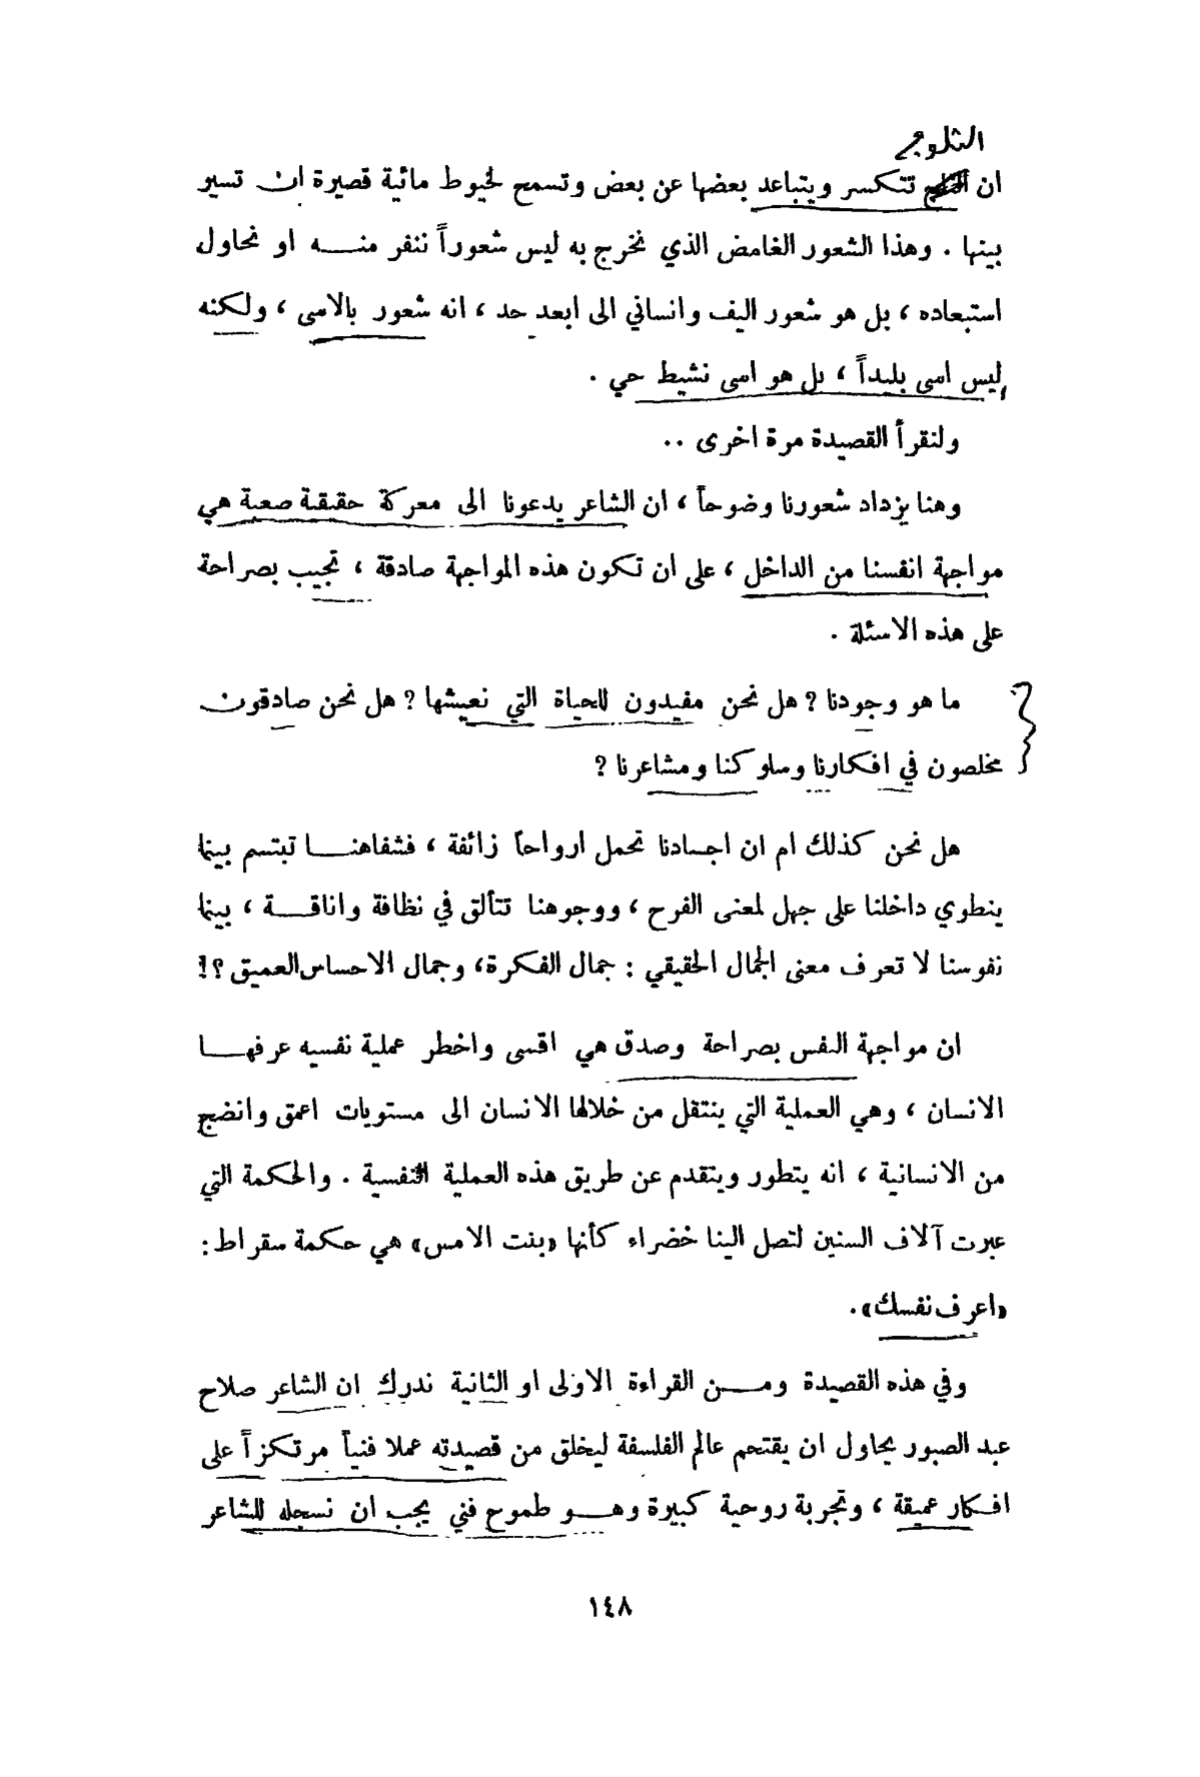 الثلوج
ان تتكسر ويتباعد بعضها عن بعض وتسمح لخيوط مائية قصيرة ان تسير
بينها . وهذا الشعور الغامض الذي نخرج به ليس شعوراً ننفر منه او نحاول
استبعاده ، بل هو شعور اليف وانساني الى ابعد حد ، انه شعور بالاسى ، ولكنه
ليس اسى بليداً ، بل هو اسى نشيط حي .
ولنقرأ القصيدة مرة اخرى ..
وهنا يزداد شعورنا وضوحاً ، ان الشاعر يدعونا الى معركة حقيقية صعبة هي
مواجهة انفسنا من الداخل ، على ان تكون هذه المواجهة صادقة ، تجيب بصراحة
على هذه الاسئلة .
ما هو وجودنا ? هل نحن مفيدون للحياة التي نعيشها ? هل نحن صادقون
مخلصون في افكارنا وسلوكنا ومشاعرنا ?
هل نحن كذلك ام ان اجسادنا تحمل ارواحاً زائفة ، فشفاهنا تبتسم بينما
ينطوي داخلنا على جهل لمعنى الفرح ، ووجوهنا تتألق في نظافة واناقة ، بينما
نفوسنا لا تعرف معنى الجمال الحقيقي : جمال الفكرة، وجمال الاحساس العميق ؟!
ان مواجهة النفس بصراحة وصدق هي اقسى واخطر عملية نفسيه عرفها
الانسان ، وهي العملية التي ينتقل من خلالها الانسان الى مستويات اعمق وانضج
من الانسانية ، انه يتطور ويتقدم عن طريق هذه العملية النفسية . والحكمة التي
عبرت آلاف السنين لتصل الينا خضراء كأنها «بنت الامس» هي حكمة سقراط :
«اعرف نفسك».
وفي هذه القصيدة ومن القراءة الاولى او الثانية ندرك ان الشاعر صلاح
عبد الصبور يحاول ان يقتحم عالم الفلسفة ليخلق من قصيدته عملا فنياً مرتكزاً على
افكار عميقة ، وتجربة روحية كبيرة وهو طموح فني يجب ان نسجله للشاعر
١٤٨